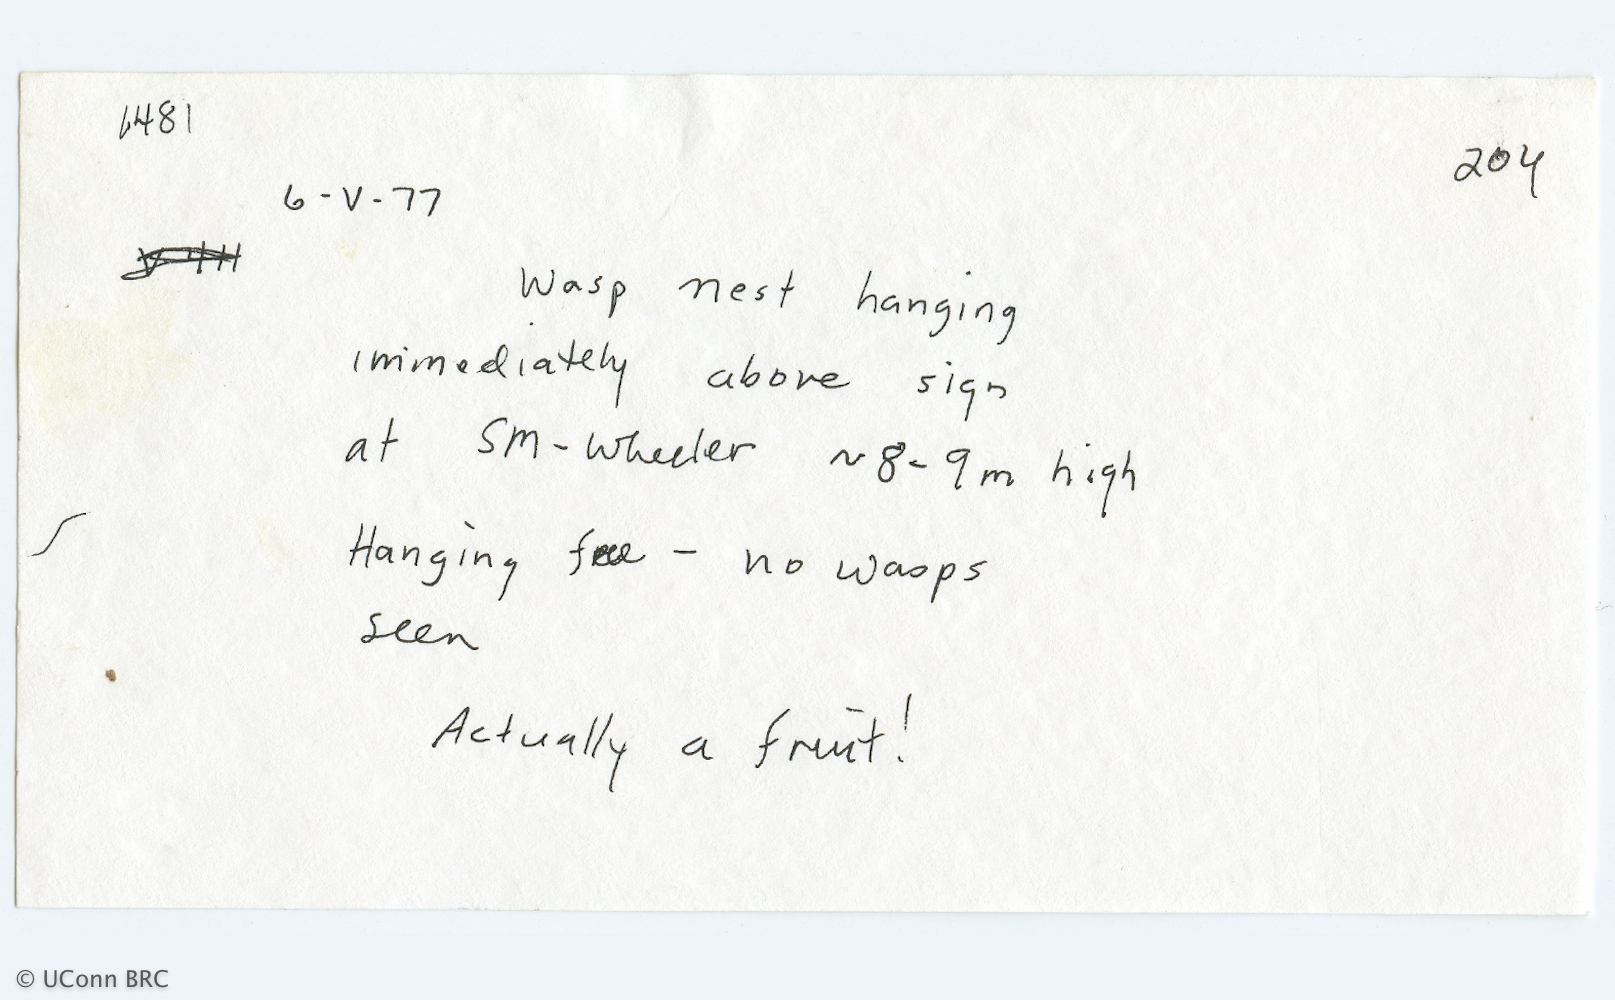 1481
204
6-V-77
Wasp nest hanging
immediately above sign
at SM-Wheeler ~8-9m high
Hanging free - no wasps
seen
Actually a fruit!
© UConn BRC